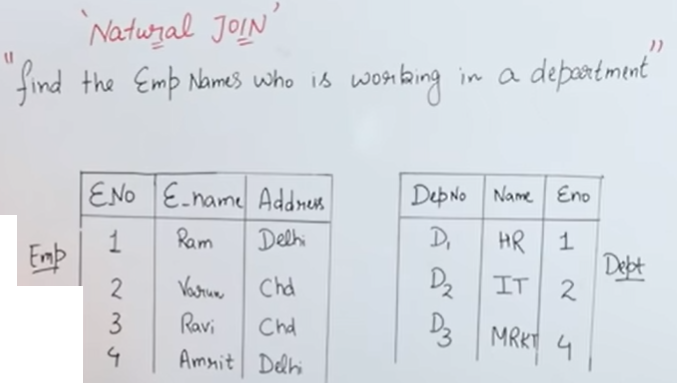 'Natural JOIN'
"find the Emp Names who is working in a department"
Emp
E.No E-name Address
1 Ram Delhi
2 Varun Chd
3 Ravi Chd
4 Amrit Delhi
DepNo Name Eno
D1 HR 1
D2 IT 2
D3 MRKT 4
Dept